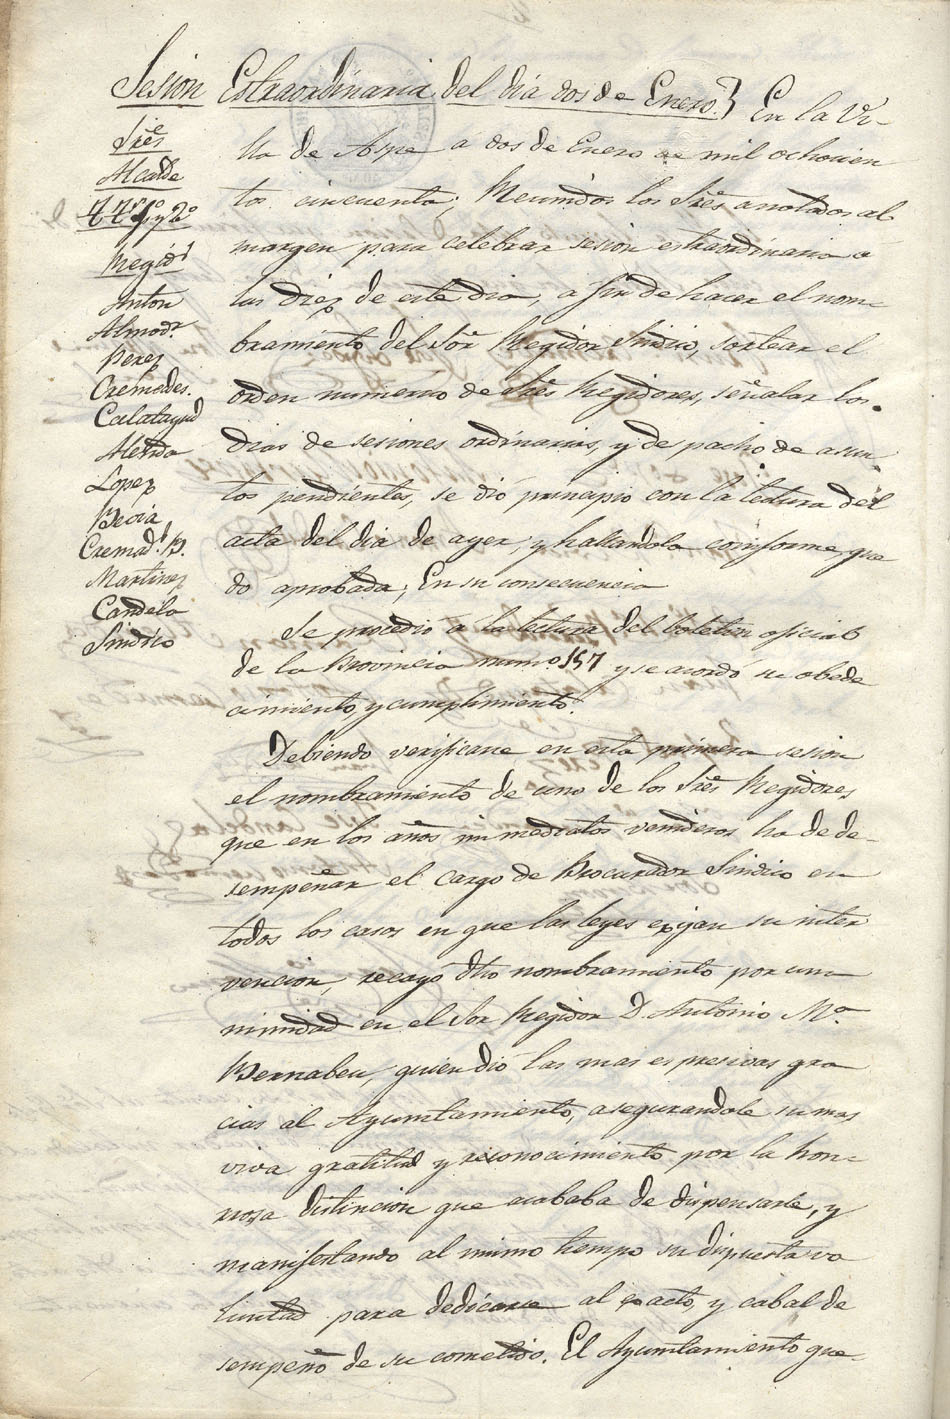 Sesion Estraordinaria del dia dos de Enero.} En la Vi-
Sres
Alcalde
TT. 1º y 2º
Regid.s
Anton
Almod.r
Perez
Cremades.
Calatayud
Alenda
Lopez
Becia
Cremad.s B.
Martinez
Candela
Sindico
lla de Aspe a dos de Enero de mil ochocien
tos cincuenta; Reunidos los Sres anotados al
margen para celebrar sesion estraordinaria a
las diez de este dia, a fin de hacer el nom-
bramiento del Sor Regidor Sindico, sortear el
orden numerico de Sres Regidores, señalar los
dias de sesiones ordinarias, y de pacho de asun-
tos pendientes, se dió principio con la lectura del
acta del dia de ayer, y hallandola conforme que
dó aprobada; En su consecuencia
Se procedió a la lectura del boletin oficial
de la Provincia num.o 157 y se acordó su obede
cimiento y cumplimiento.
Debiendo verificarse en esta primera sesion
el nombramiento de uno de los Sres Regidores
que en los años inmediatos venideros ha de de-
sempeñar el cargo de Procurador Sindico en
todos los casos en que las leyes exijan su inter
vencion, recayó dho nombramiento por una-
nimidad en el Sor Regidor D. Antonio M.a
Bernabeu, quien dió las mas espresivas gra
cias al Ayuntamiento, asegurandole su mas
viva gratitud y reconocimiento por la hon-
rosa distincion que acababa de dispensarle, y
manifestando al mismo tiempo su dispuesta vo
luntad para dedicarse al exacto, y cabal de
sempeño de su cometido. El Ayuntamiento que-